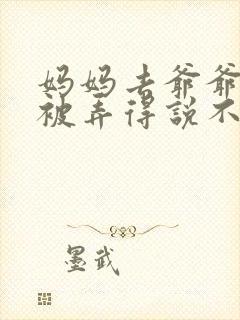 妈妈去爷爷
被弄得说不
墨武